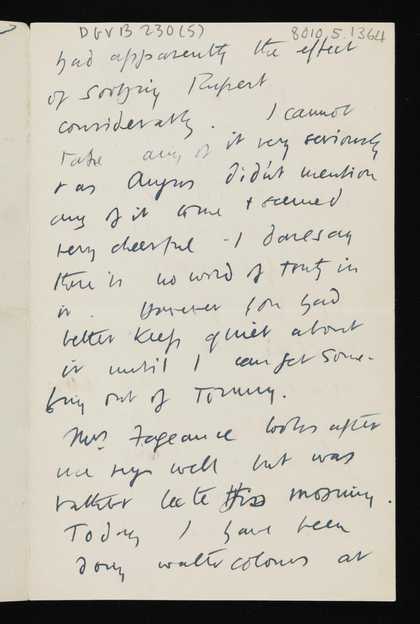 DGVB 230(5) 8010.5.1364
had apparently the effect
of soothing Rupert
considerably. I cannot
take any of it very seriously
& as Angus didn't mention
any of it come & seemed
very cheerful - I daresay
there is no word of truth in
it. However you had
better keep quiet about
it until I can get some-
thing out of Tommy.
Mrs. looks after
me very well but was
rather late this morning.
Today I have been
doing watercolours at